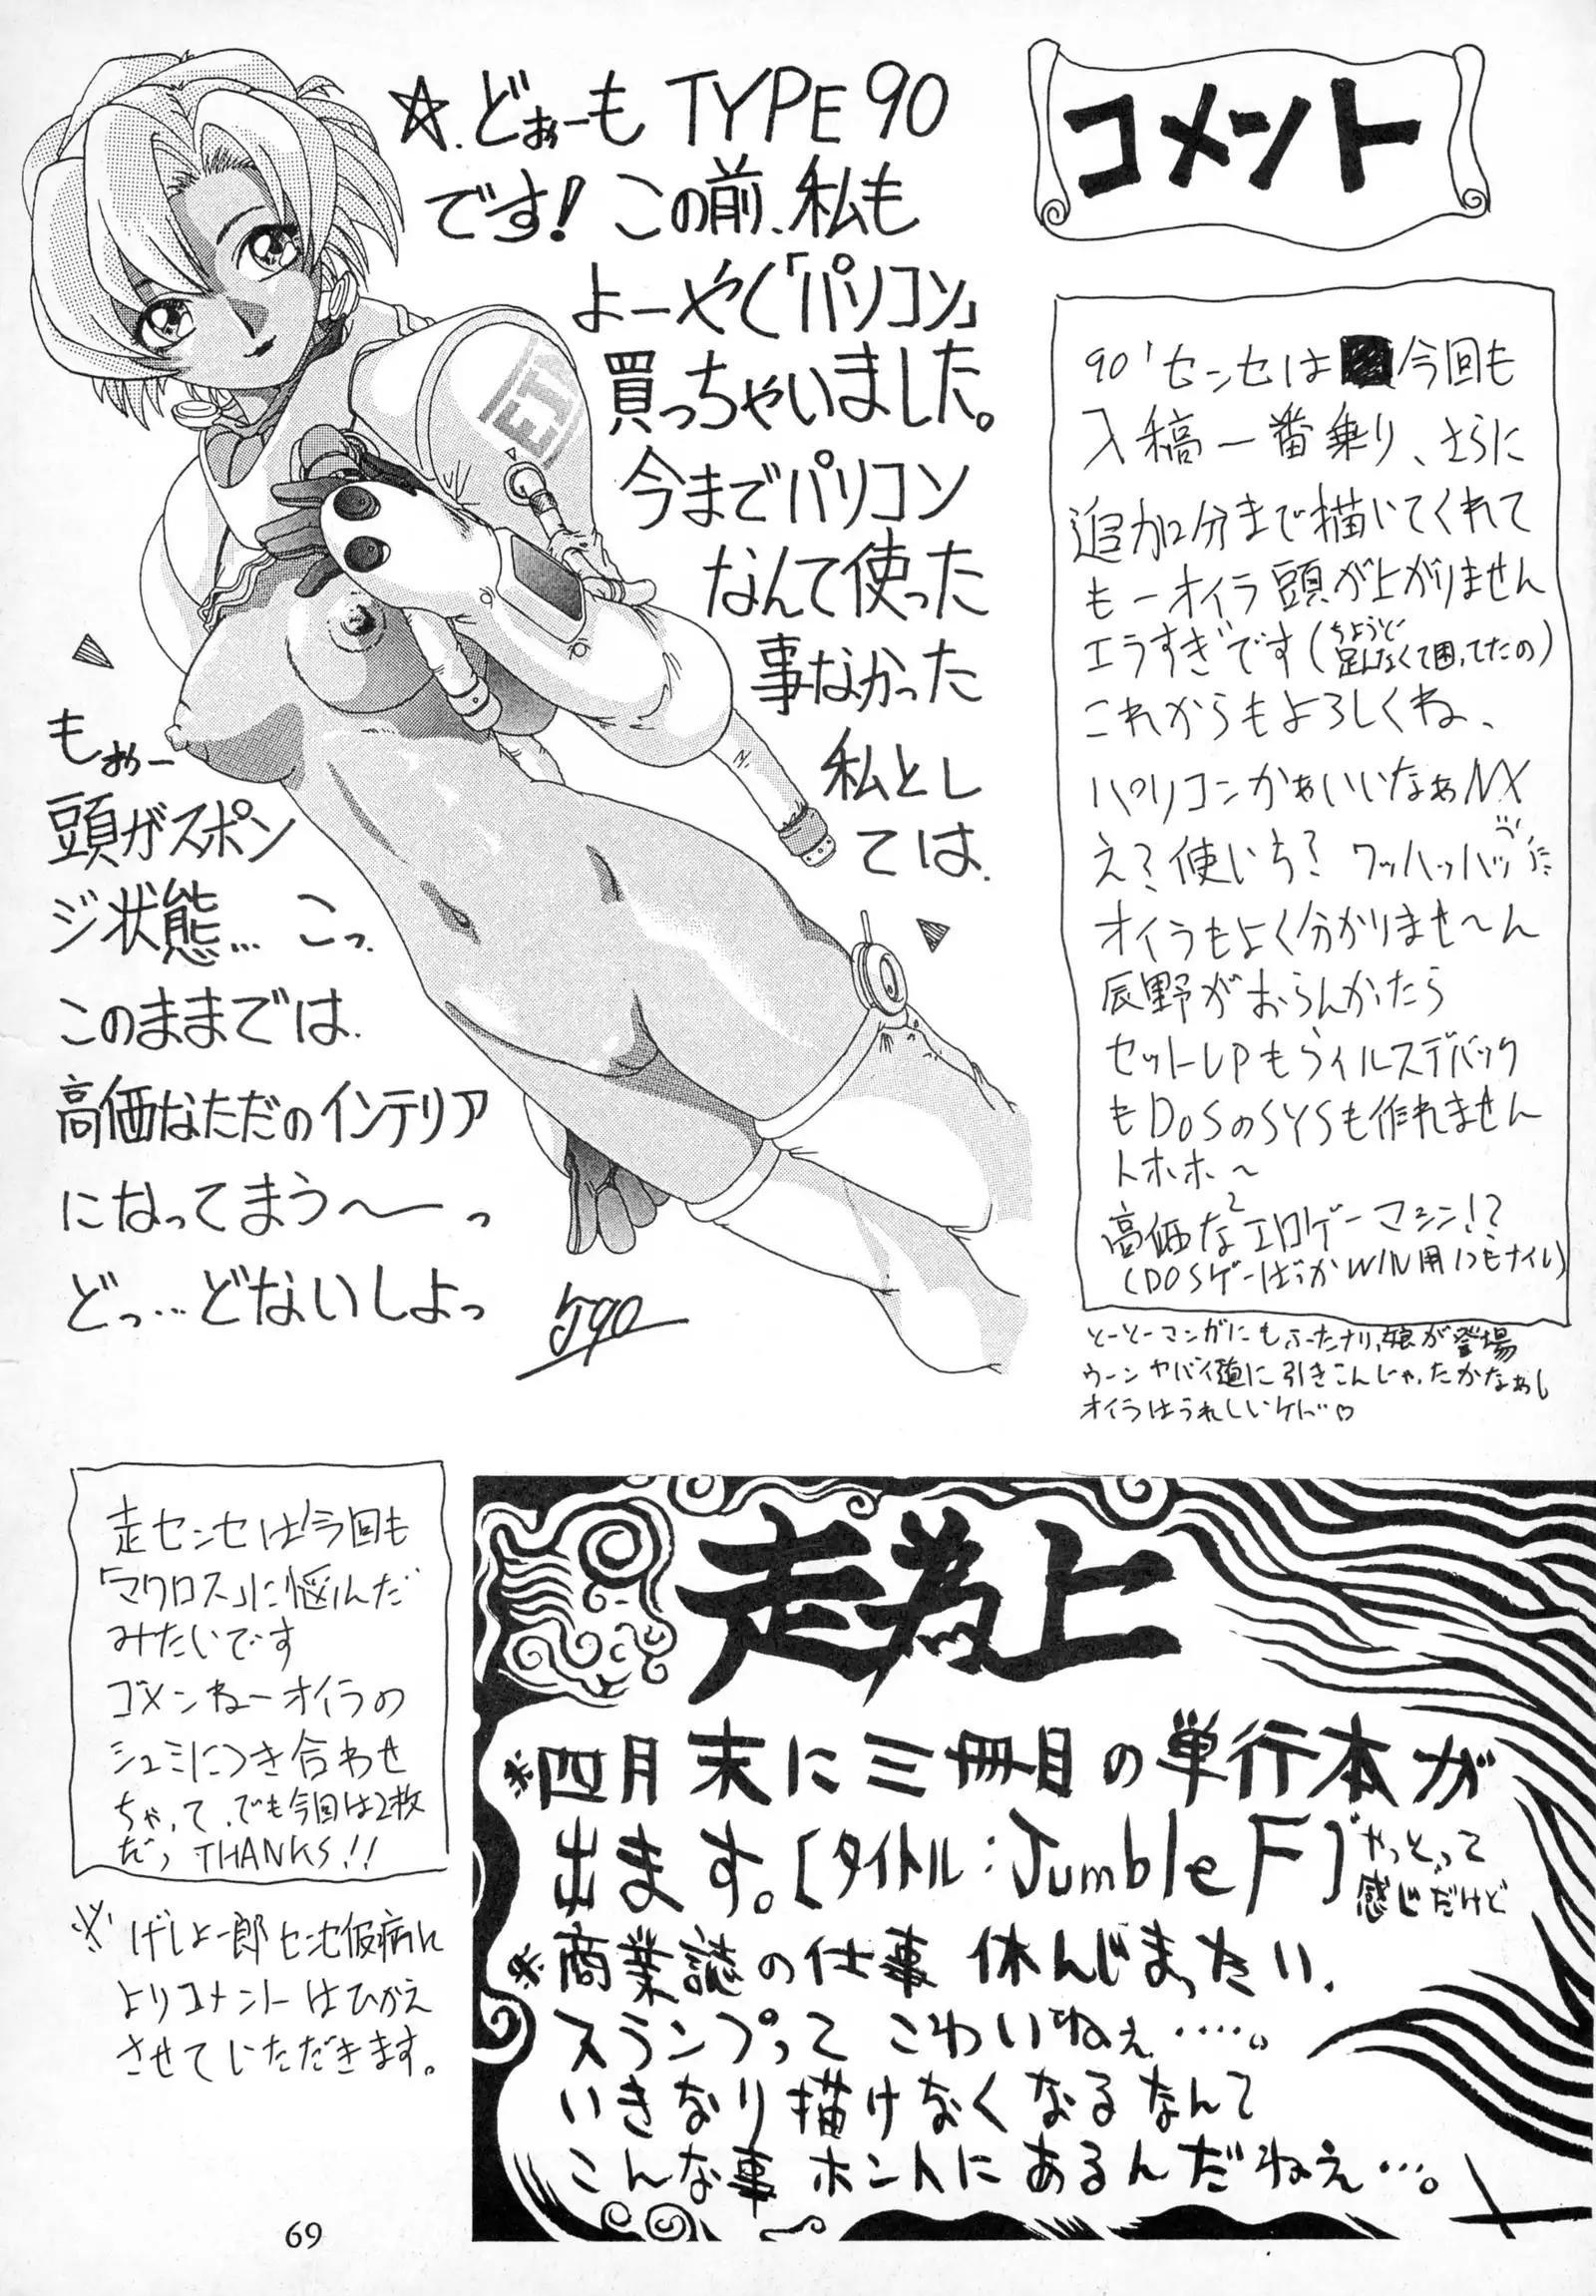 コメント
☆.どぉーも TYPE 90
です! この前、私も
よーやく「パソコン」
買っちゃいました。
今までパソコン
なんて使った
事なかった
私とし
ては.
もぉー
頭がスポン
ジ状態… こっ.
このままでは.
高価なただのインテリア
になってまう〜ーっ
どっ…どないしよっ
J90
EI
90'センセは 今回も
入稿一番乗り、さらに
追加2分まで描いてくれて
もーオイラ頭が上がりません
エラすぎです(ちょうど
足んなくて困ってたの)
これからもよろしくね、
パソコンかぁいいなぁNX
え?使いち? ワッハッハッ
オイラもよく分かりませ〜ん
辰野がおらんかたら
セットUPもウィルスデバック
もDOSのSYSも作れません
トホホ〜
高価な2エロゲーマシン!?
(DOSゲーばっかWIN用1つもナイし)
とーとーマンガにもふたナリ娘が登場
ウーン ヤバイ道に引きこんじゃったかなぁし
オイラはうれしいケド♡
走センセは今回も
「マクロス」に悩んだ
みたいです
ゴメンねーオイラの
シュミにつき合わせ
ちゃって.でも今回は2枚
だっ THANKS!!
※げしょ一郎センセ仮病に
よりコメントはひかえ
させていただきます。
走為上
※四月末に三冊目の単行本が
出ます。[タイトル:Jumble F]やっとって
感じだけど
※商業誌の仕事 休んじまったい.
スランプって こわいねぇ……。
いきなり描けなくなるなんて
こんな事ホントにあるんだねぇ…。
69